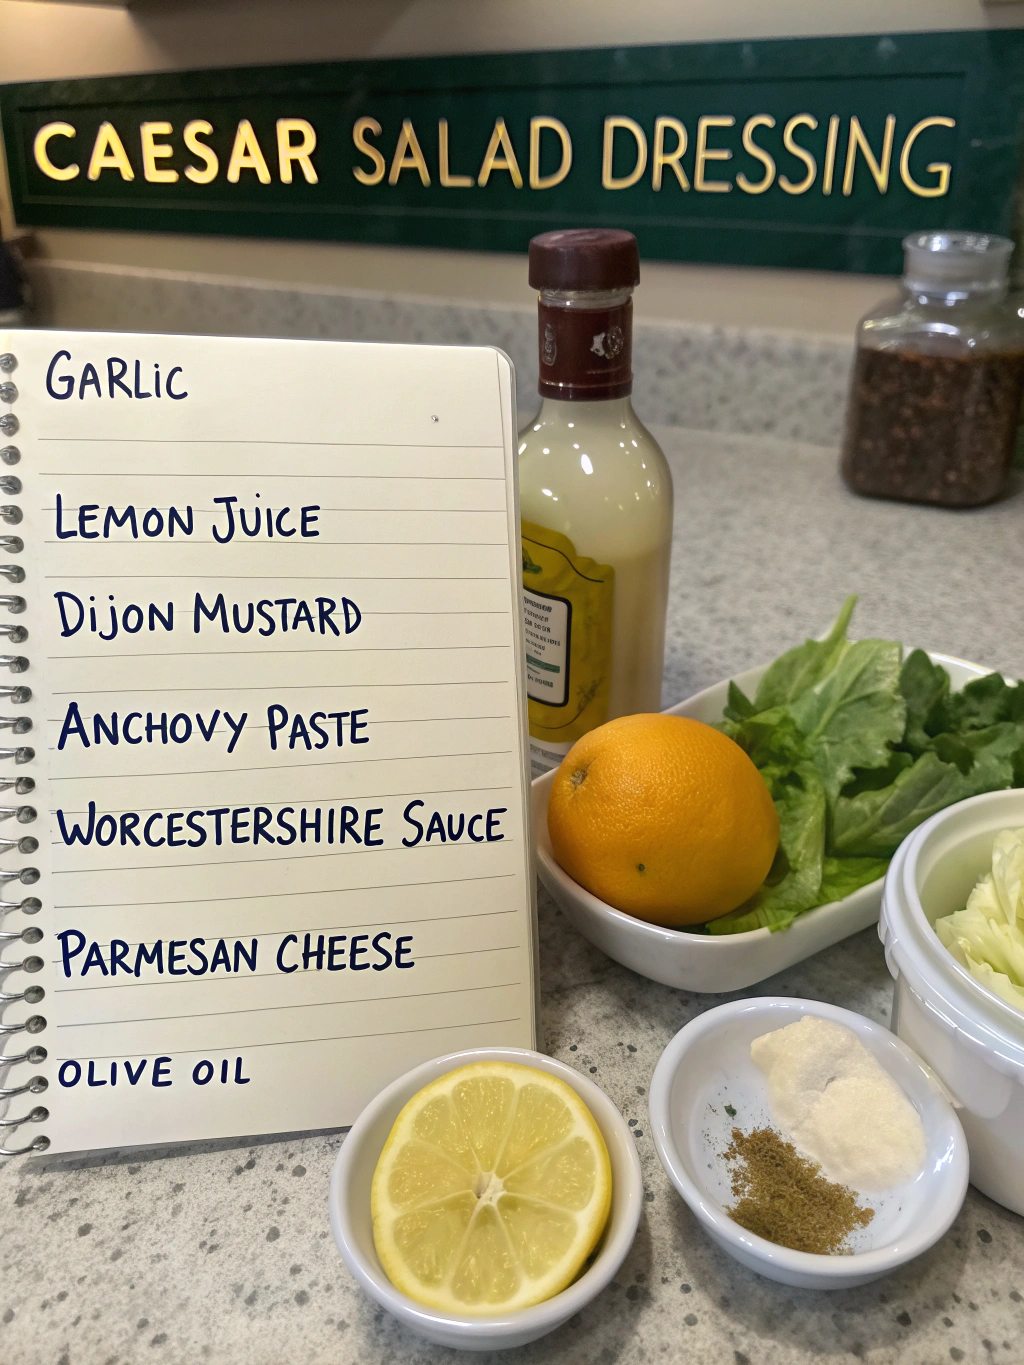 CAESAR SALAD DRESSING
GARLiC
LEMON JUiCE
DijON MUSTARD
ANCHOVY PASTE
WORCESTERSHIRE SAUCE
PARMESAN CHEESE
OLIVE OIL